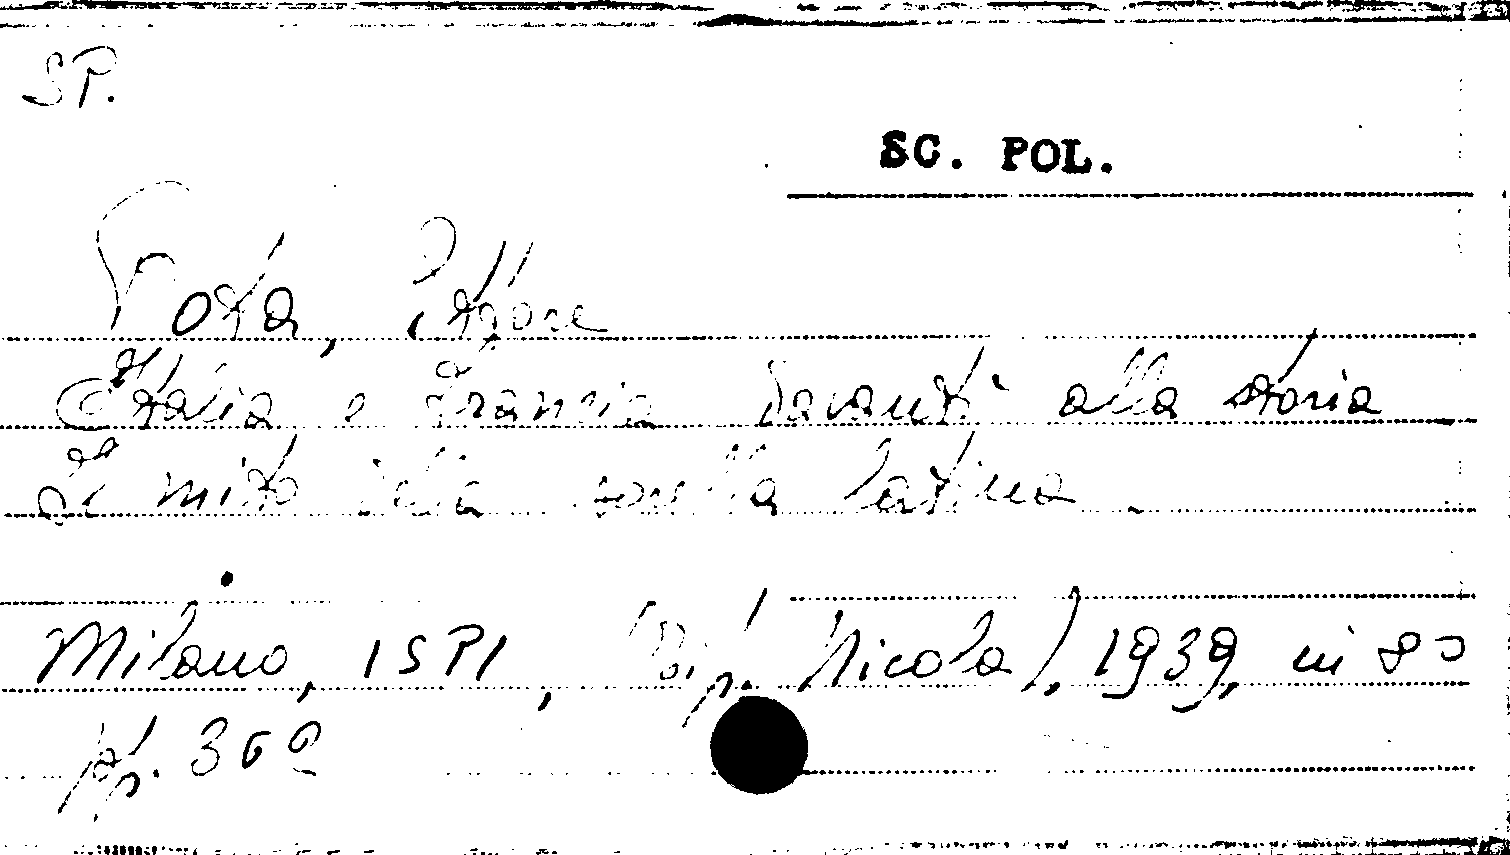 SP.
SC. POL.
Rota, Ettore
Italia e Francia davanti alla storia
Il mito della sorella latina.
Milano, ISPI, (Tip. Nicola), 1939, in 8°
pp.